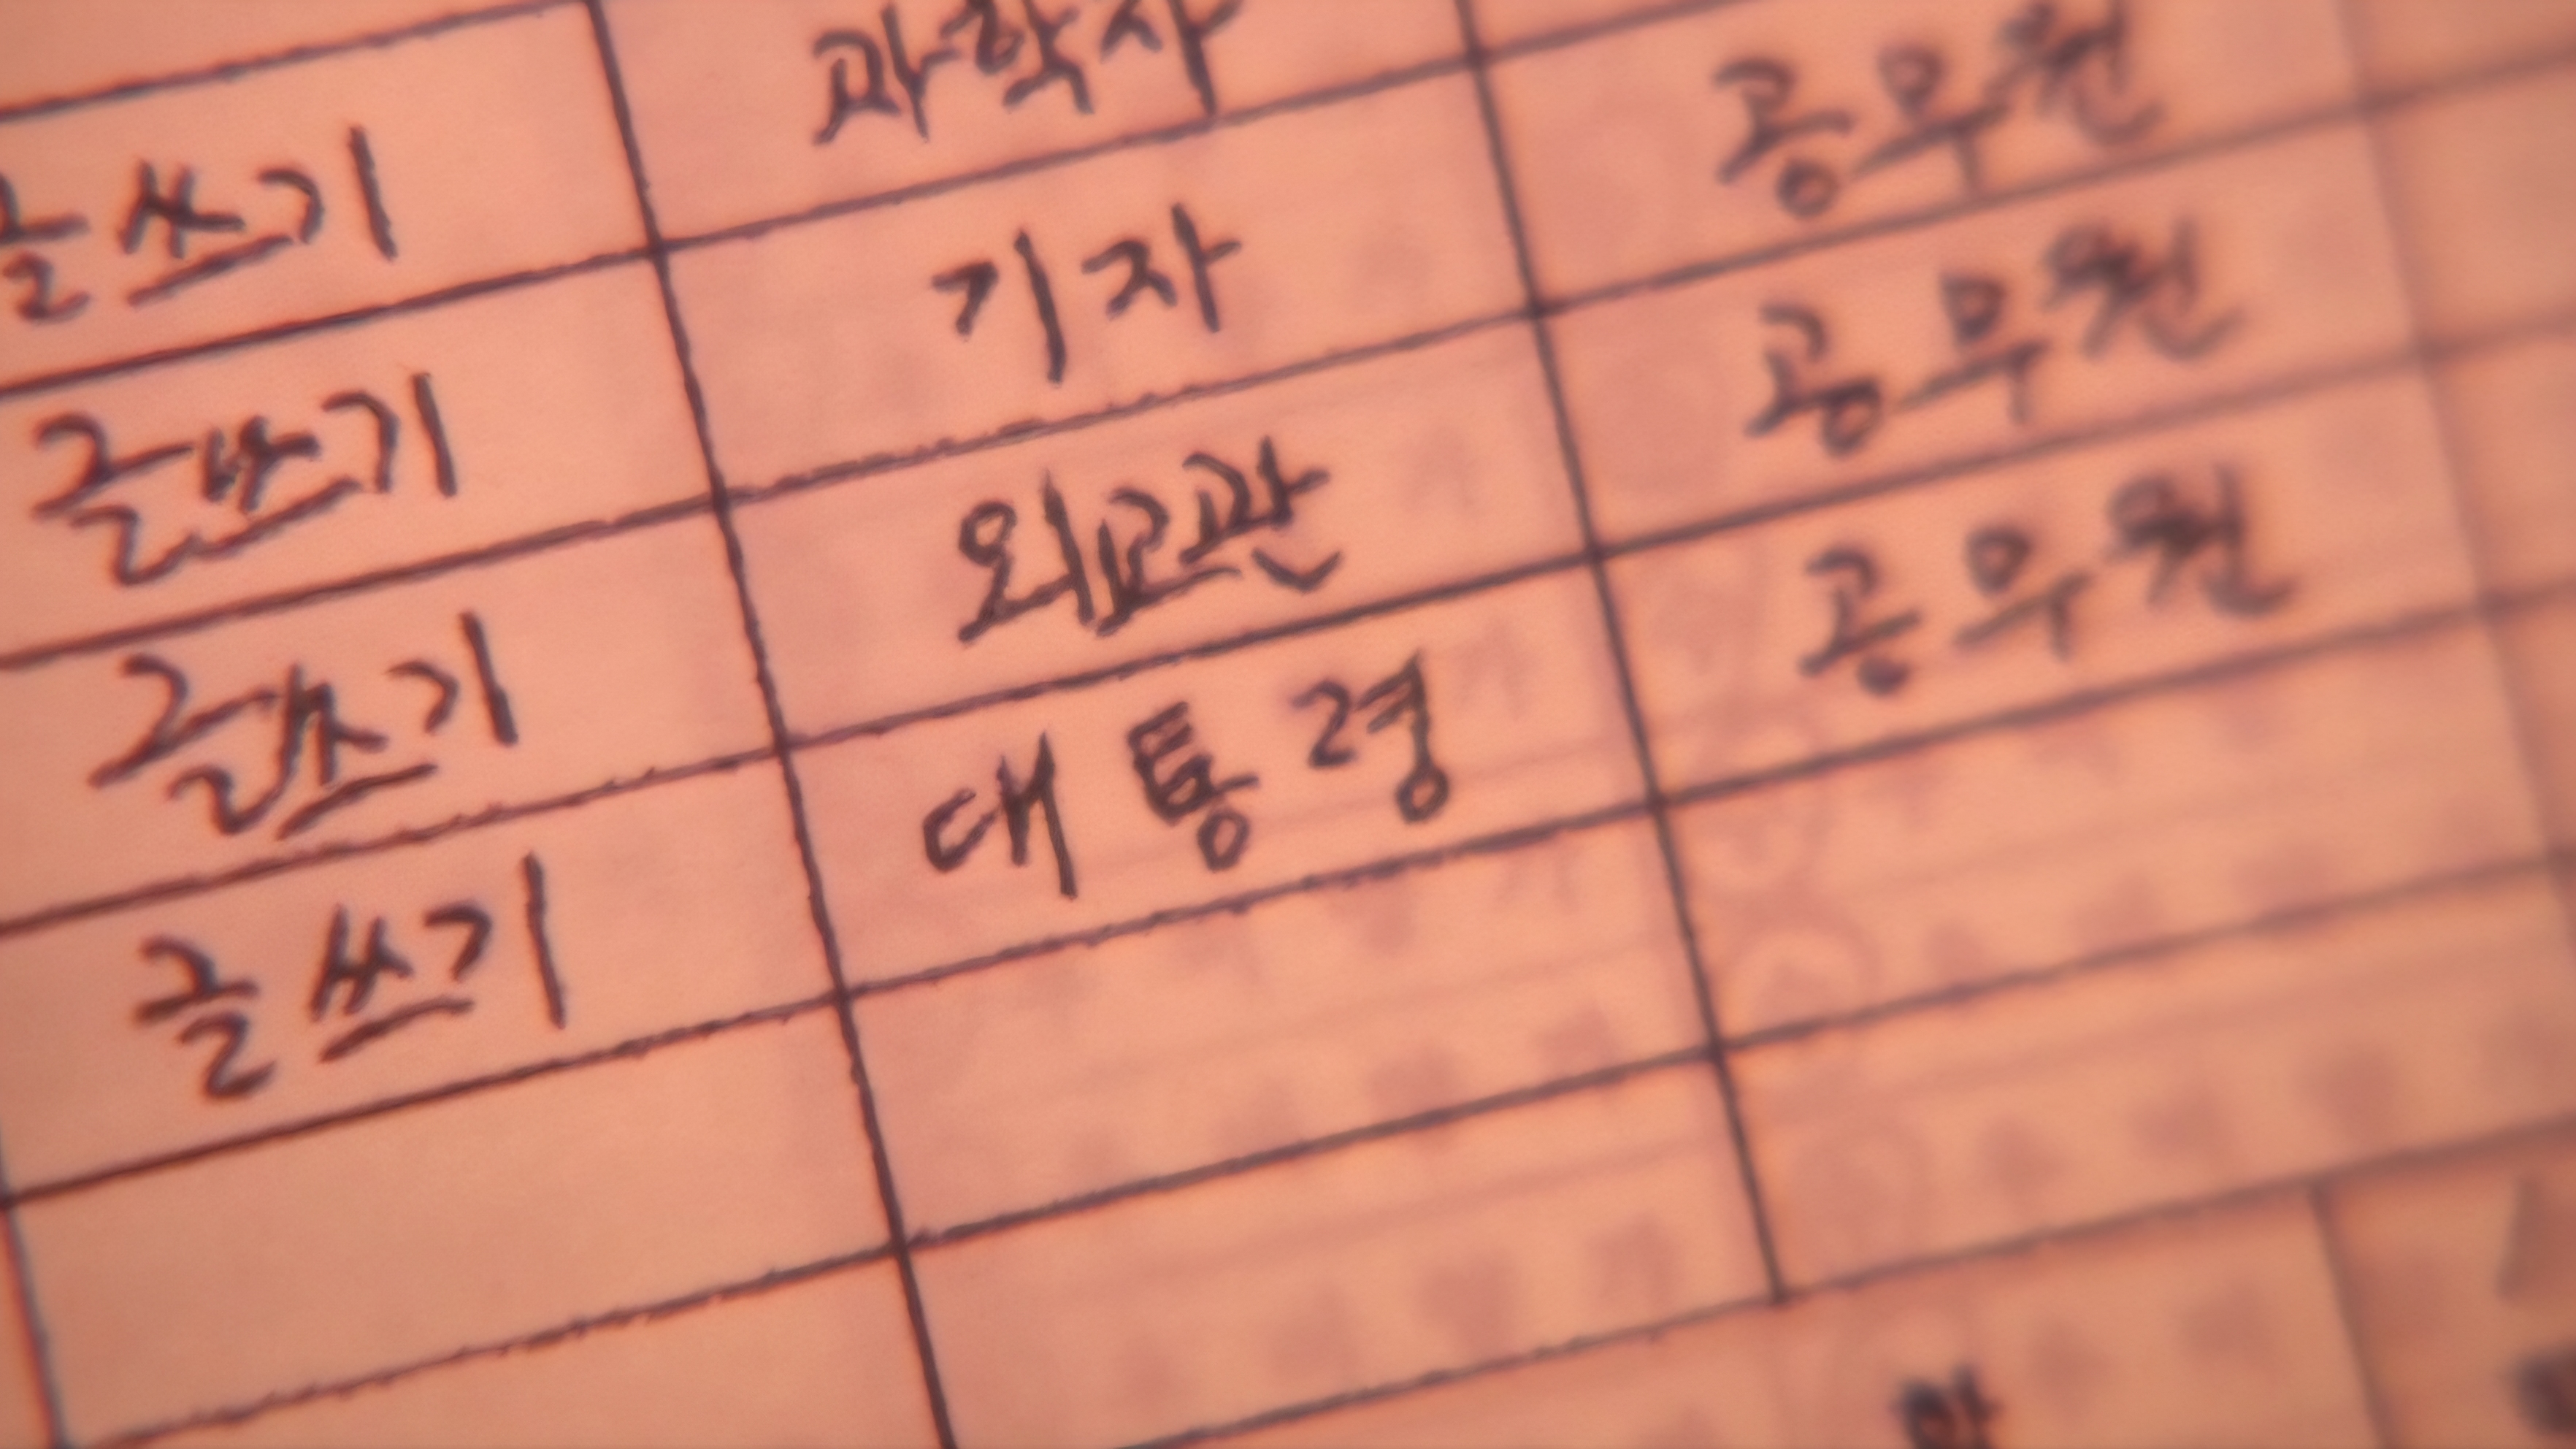 글쓰기 과학자 공무원
글쓰기 기자 공무원
글쓰기 외교관 공무원
글쓰기 대통령